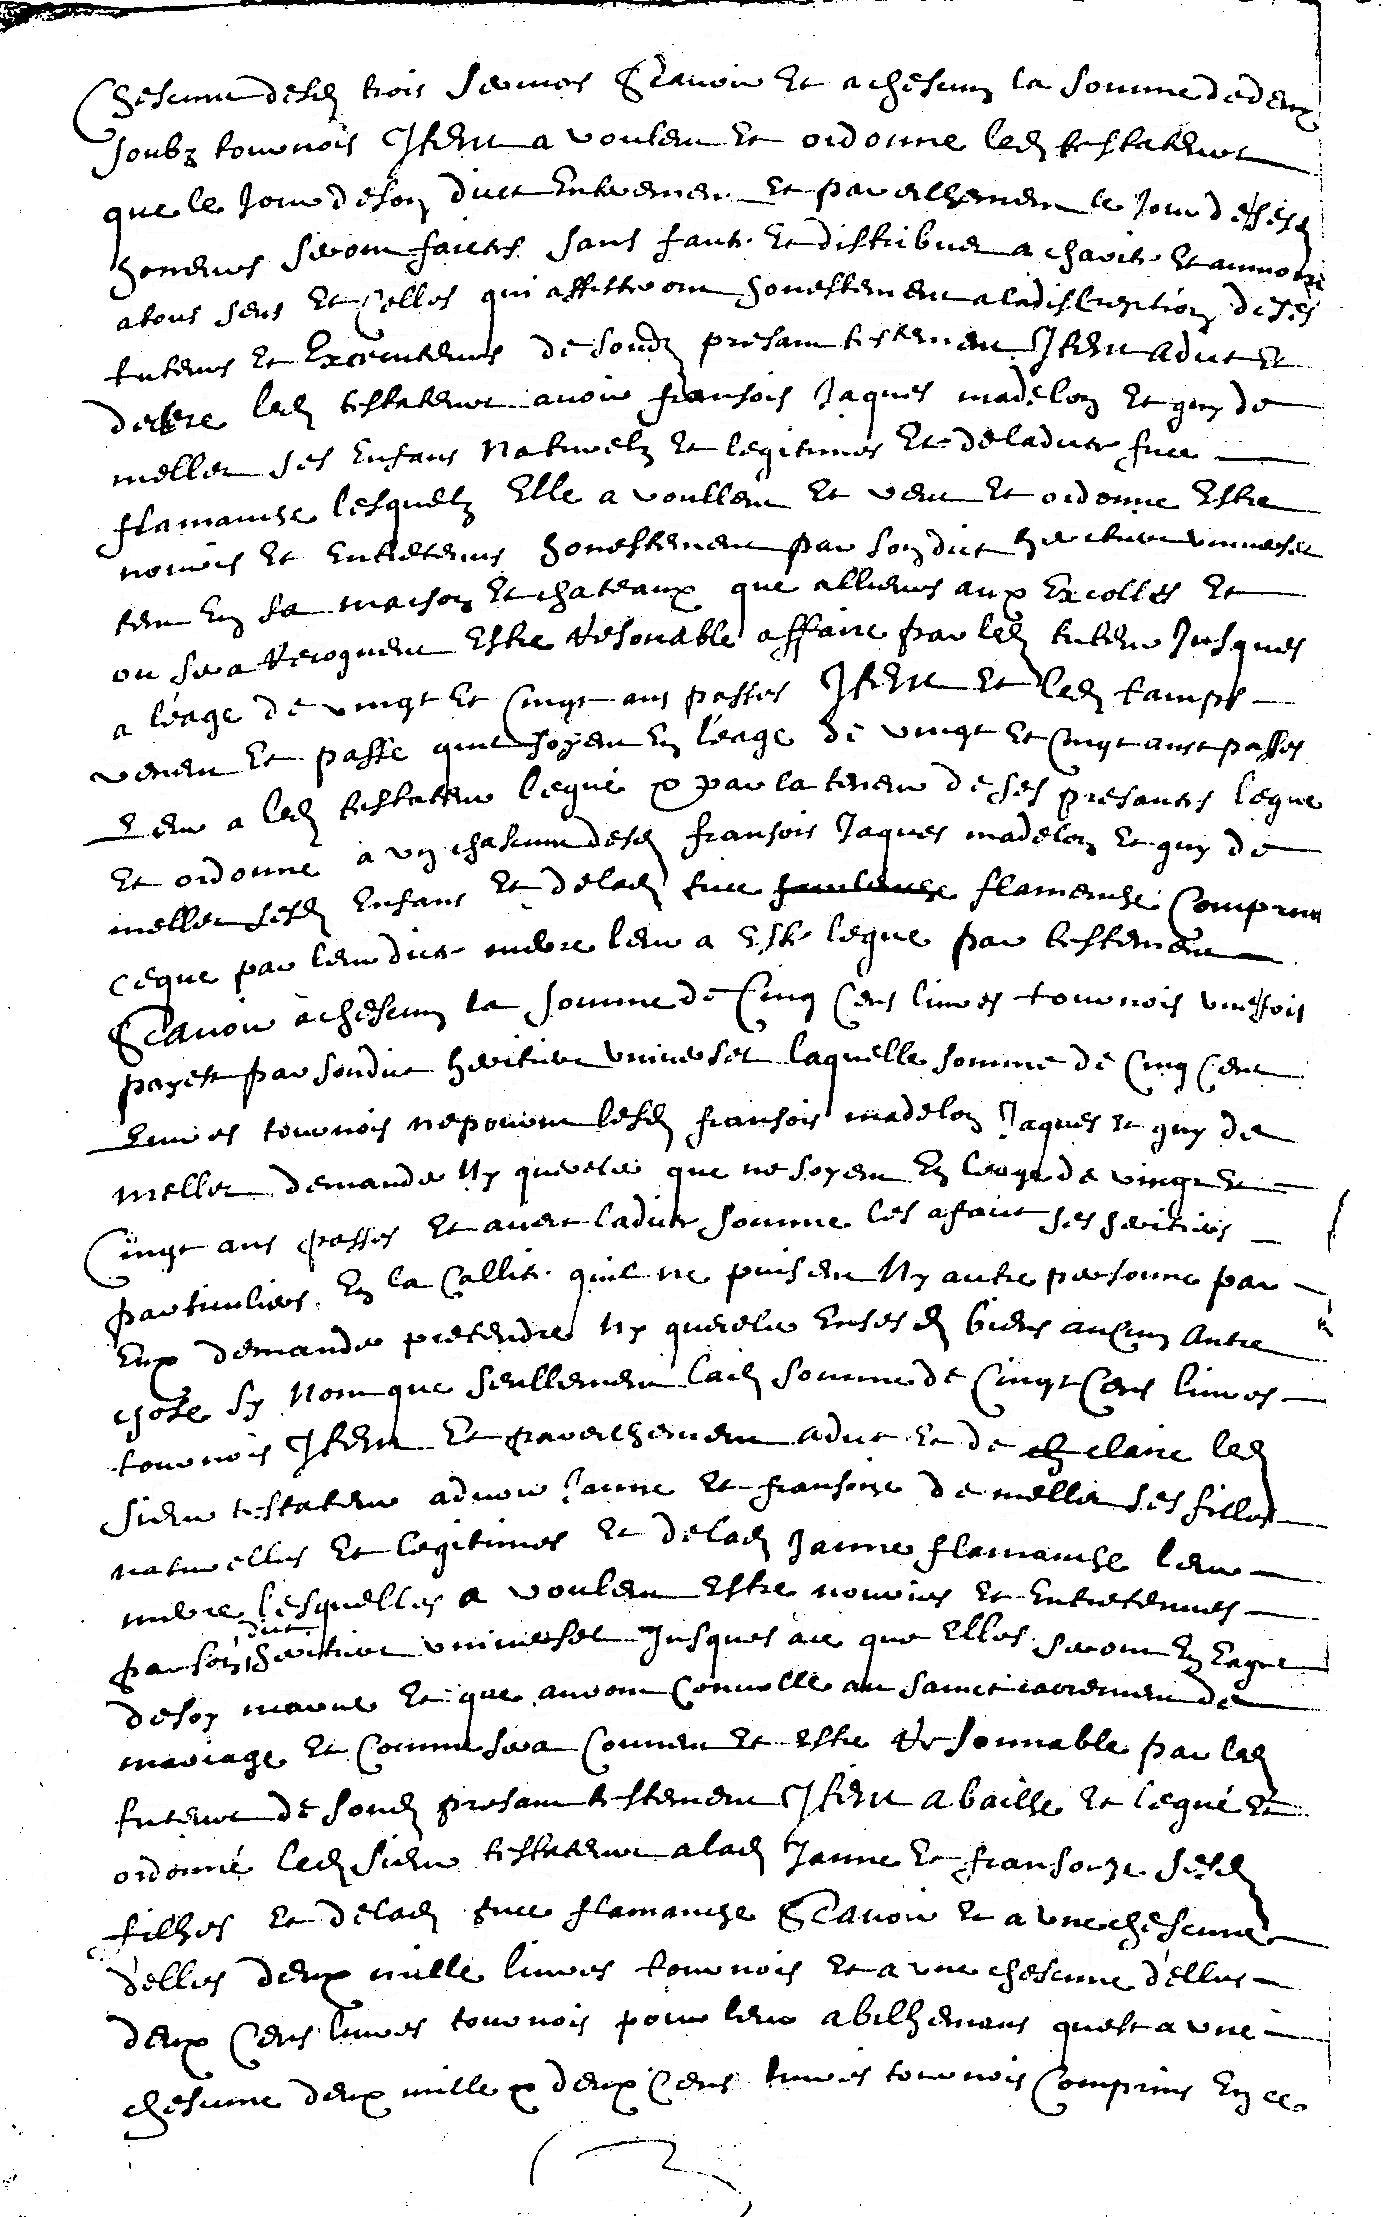 Chescune desd trois serues Scauoir Et a chescung la somme de deux
soubz tournois Item a voulleu Et ordonne led testateur
que le Jour de son dict Enterremen Et parelhemen le Jour de sesd
honeurs seront faictes sans faute Et distribuer a charite Et aumone
a tous seus Et Celles qui assistront honestement a la discreption de ses
tuteurs Et Executeurs de soud presant testement Item a dict Et
declere led testateur auoir fransois Jaques madelon Et guy de
mellet ses Enfans Naturelz Et legitimes Et de la dicte feue
flamanche lesquelz Elle a voulleu Et veut Et ordonne Estre
nouris Et Entretenus honestement par son dict heretier uniuersel
tem En sa maison Et chateaux que allieurs aux Excolles Et
ou sera Recogneu Estre Resonable affaire par led tuteur Jusques
a l'eage de vingt Et Cingt ans passes Item Et led tamps
veneu Et passe quil soyent En l'eage de vingt Et Cingt ans passes
Leur a led testateur legué & par la teneur de ses presantes legue
Et ordonne a vng chascun desd fransois Jaques madelon Et guy de
mellet sesd Enfans Et de lad feue flamenche Comprins
ce que par leur dicte mere leur a Este legue par testement
Scauoir a chescung la somme de Cinq Cens liures tournois vne fois
payes par son dict heritier vniuersel laquelle somme de Cinq Cent
Liures tournois ne pouront lesd fransois madelon Jaques Et guy de
mellet demander Ny quereler que ne soyent En leage de vingt Et
Cingt ans passes Et auec la dicte somme les a faict ses heritiers
particuliers En la Callite quil ne puisent Ny autre personne par
Eux demander pretendre Ny quereler En sesd biens aulcung Autre
chose Sy Non que seullement lad somme de Cingt Cens liures
tournois Item Et parelhement a dict Et de claire led
sieur testateur aduoir Janne Et fransoise de mellet ses filles
naturelles Et legitimes Et de lad Janne flamanche leur
mere lesquelles a vouleu Estre nouries Et Entretenues
par son dict heritier vniuersel Jusques a ce que Elles seront En Eage
de soy marier Et que auront Conuolle au sainct sacrement de
mariage Et Comme sera Conneu Et Estre Resonnable par led
tuteur de soud presant testement Item a bailhe Et legué Et
ordonné led sieur testateur a lad Janne Et fransoize sesd
filhes Et de lad feue flamanche Scauoir Et a vne chescune
d'elles deux mille liures tournois Et a vne chescune d'elles
deux Cens liures tournois pour leur abilhemans quest a vne
chescune deux mille & deux Cens liures tournois Comprins En ce